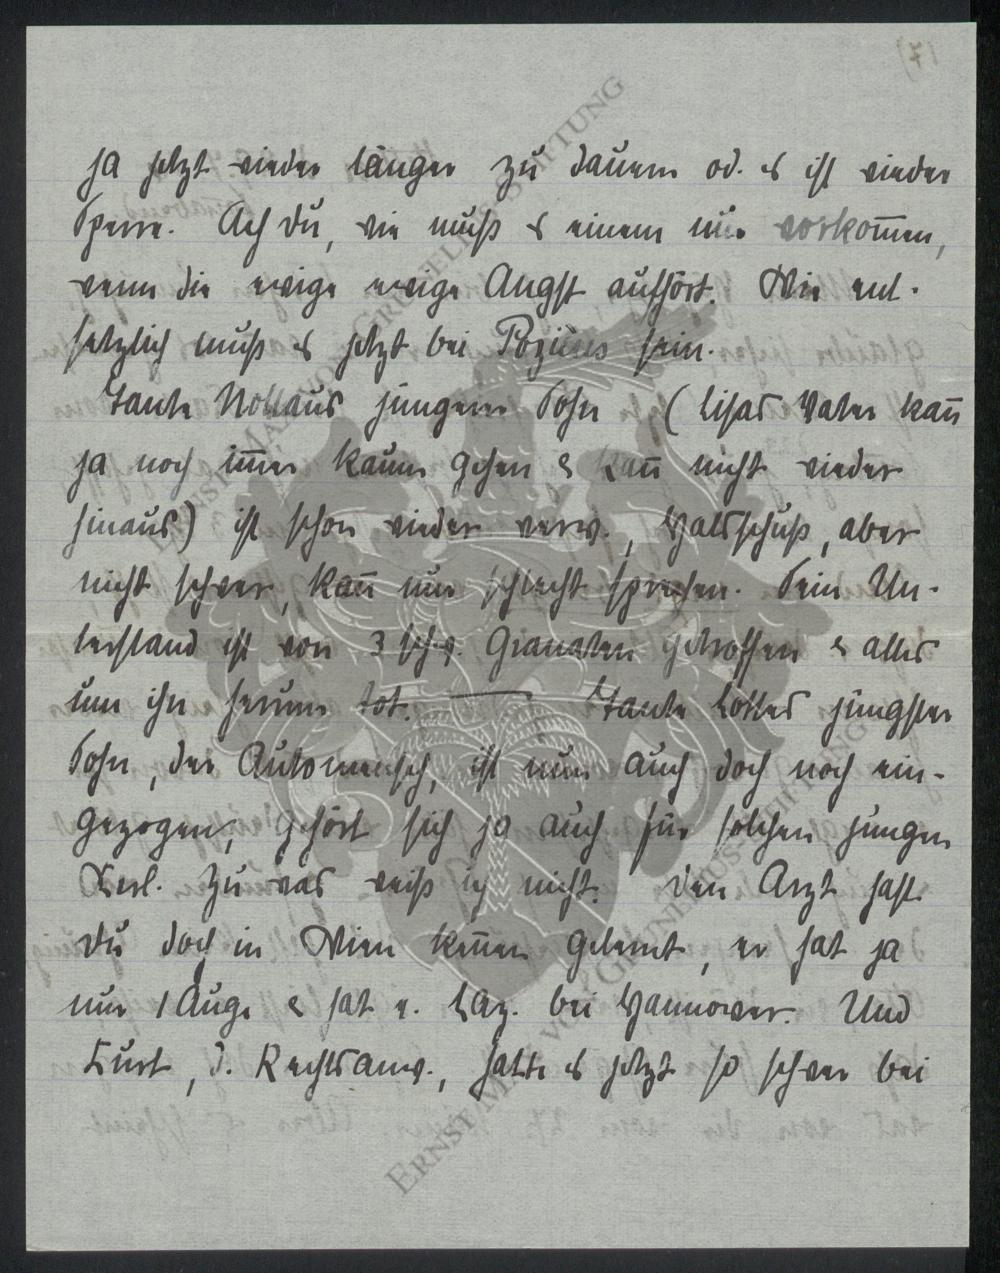 17)
ja jetzt wieder länger zu dauern od. es ist wieder
Sperre. Ach du, wie muß es einem nur vorkom̄en,
wenn die ewige ewige Angst aufhört. Wie ent-
setzlich muß es jetzt bei Pozieres sein.
Tante Nollaus jüngerer Sohn, (Lisas Vater kan̄
ja noch im̄er kaum gehen & kan̄ nicht wieder
hinaus) ist schon wieder verw., Halsschuß, aber
nicht schwer, kan̄ nur schlecht sprechen. Sein Un-
terstand ist von 3 schw. Granaten getroffen & alles
um ihn herum tot. — Tante Lottes jüngster
Sohn, der Automensch, ist nun auch doch noch ein-
gezogen, gehört sich ja auch für solchen jungen
Kerl. Zu was weiß ich nicht. Den Arzt hast
du doch in Wien ken̄en gelernt, er hat ja
nur 1 Auge & hat e. Laz. bei Hannover. Und
Kurt, d. Rechtsanw., hatte es jetzt so schwer bei
ERNST MAX VON GRUNELIUS-STIFTUNG
ERNST MAX VON GRUNELIUS-STIFTUNG